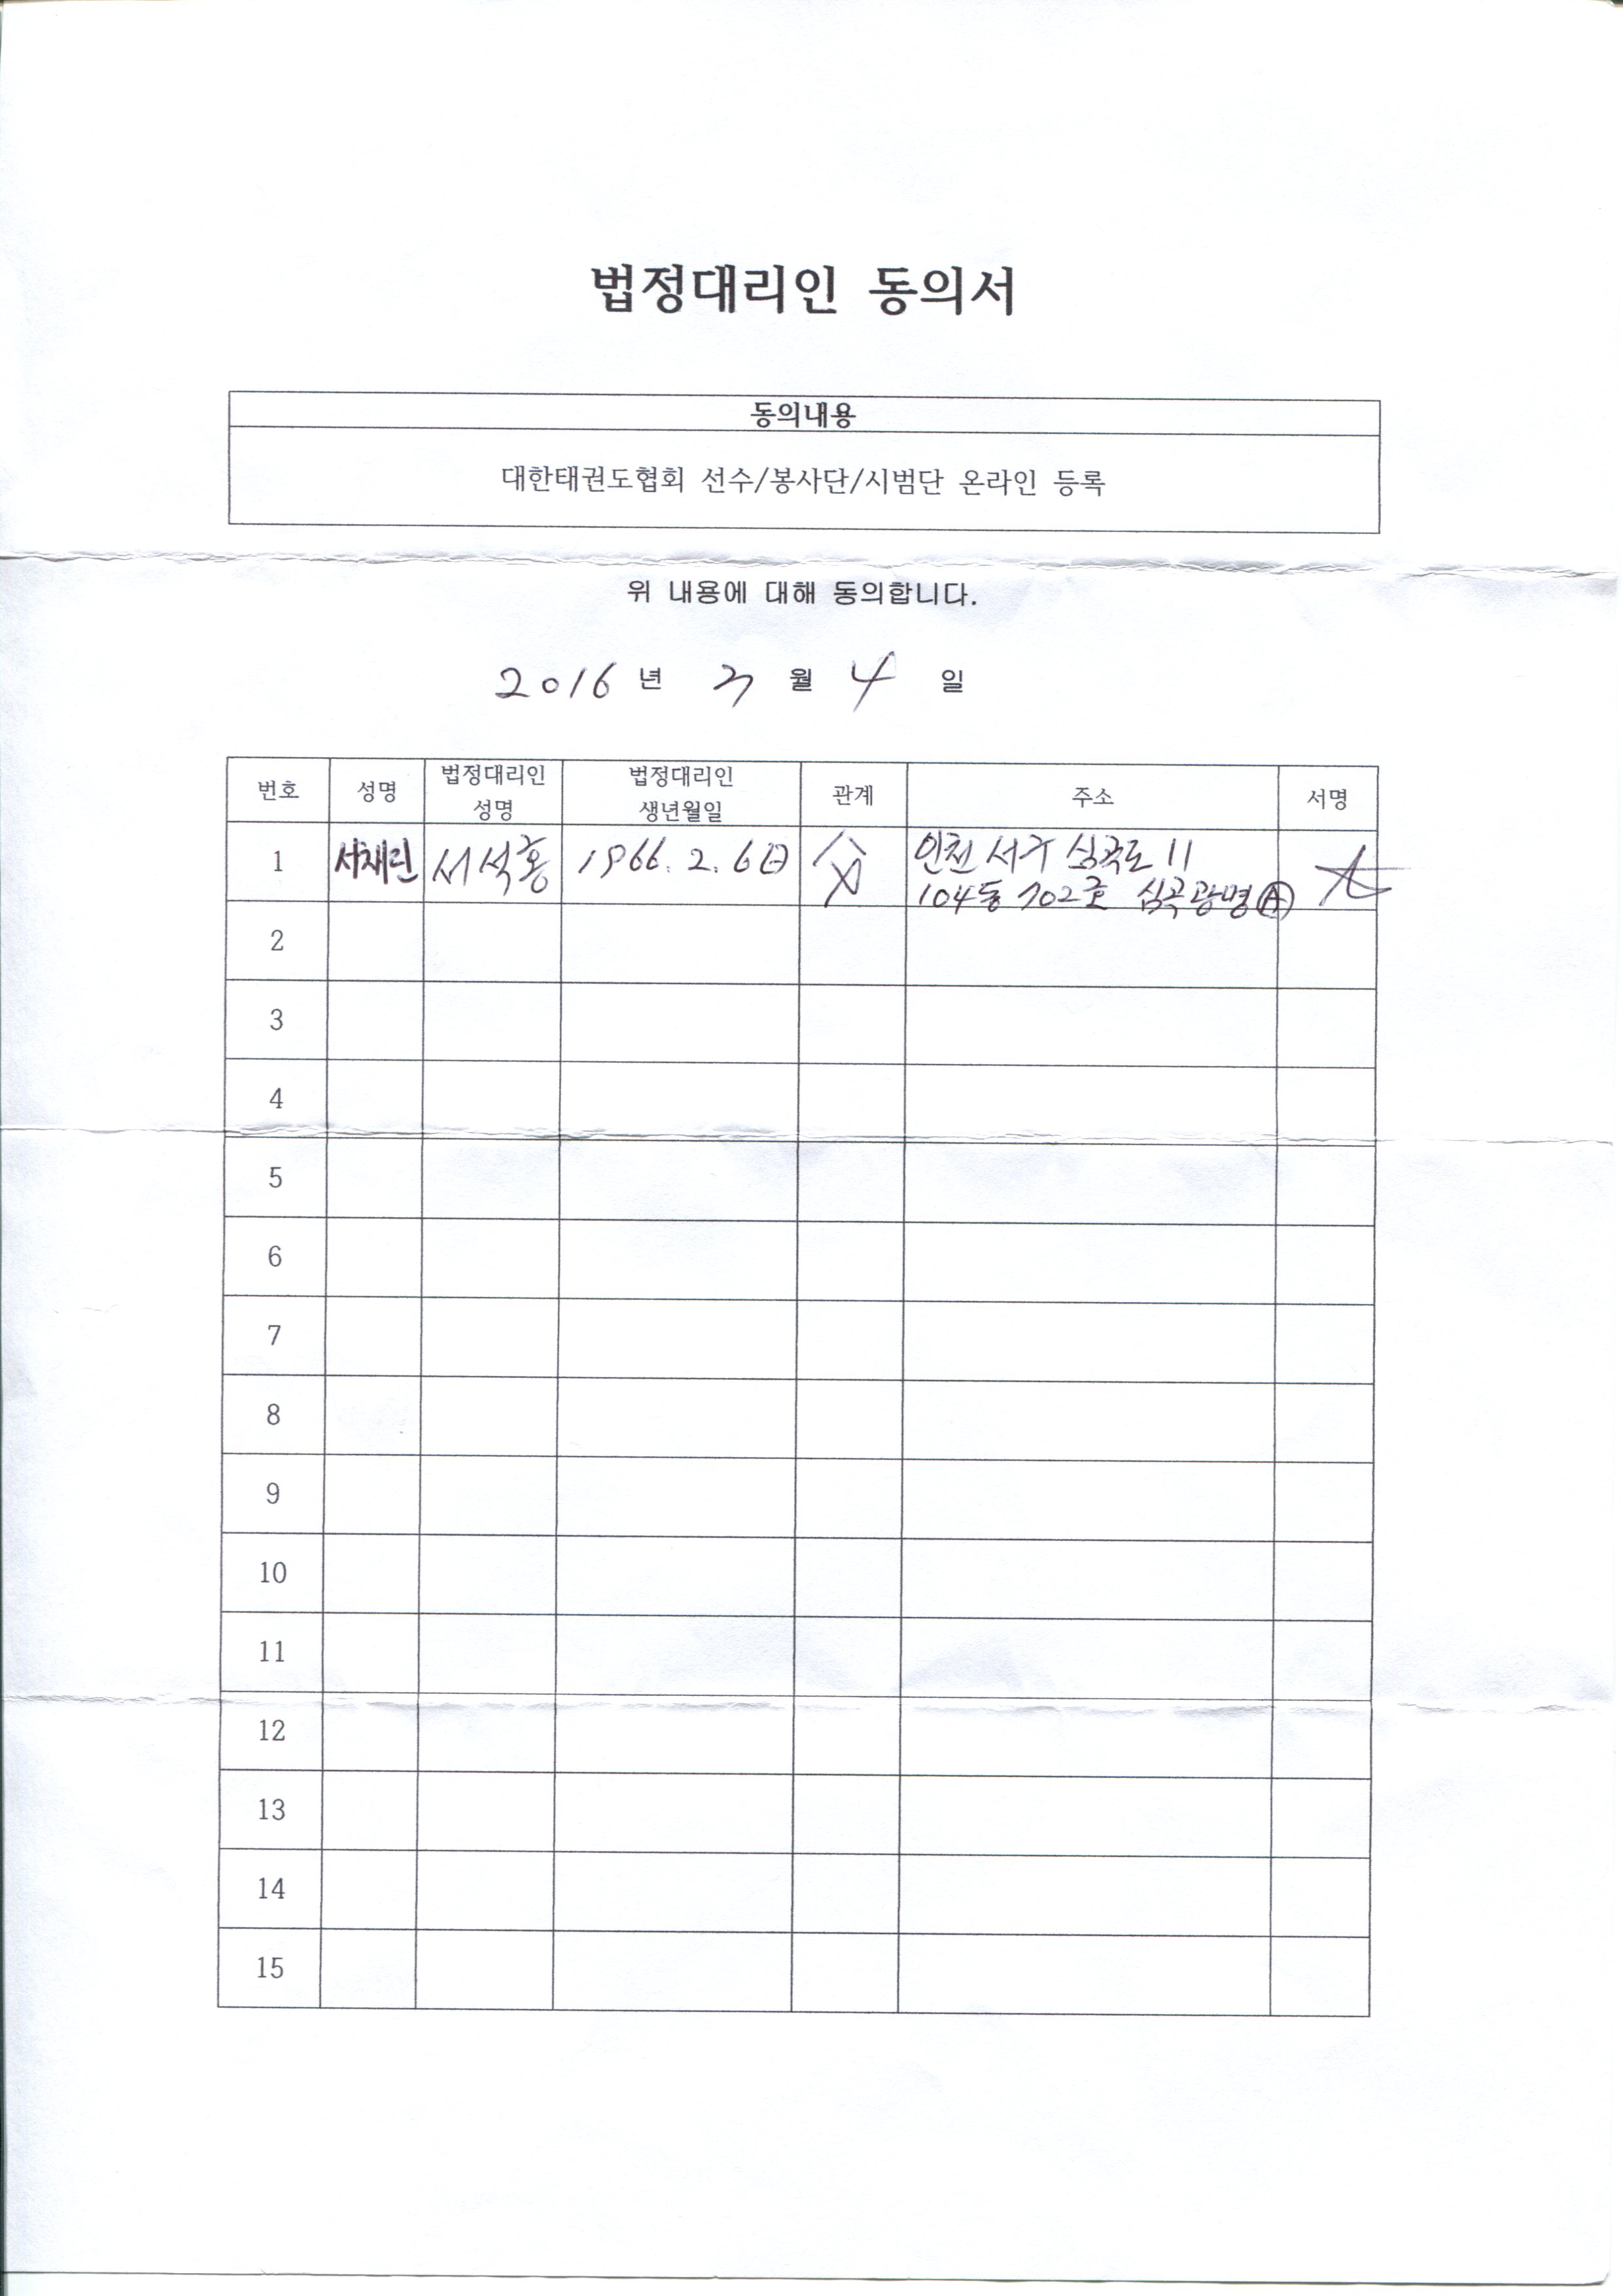 법정대리인 동의서
동의내용
대한태권도협회 선수/봉사단/시범단 온라인 등록
위 내용에 대해 동의합니다.
2016 년 3 월 4 일
번호 성명 법정대리인 성명 법정대리인 생년월일 관계 주소 서명
1 서채린 서석홍 1966. 2. 6 父 인천 서구 심곡로 11
104동 702호 심곡광명Ⓐ
2
3
4
5
6
7
8
9
10
11
12
13
14
15